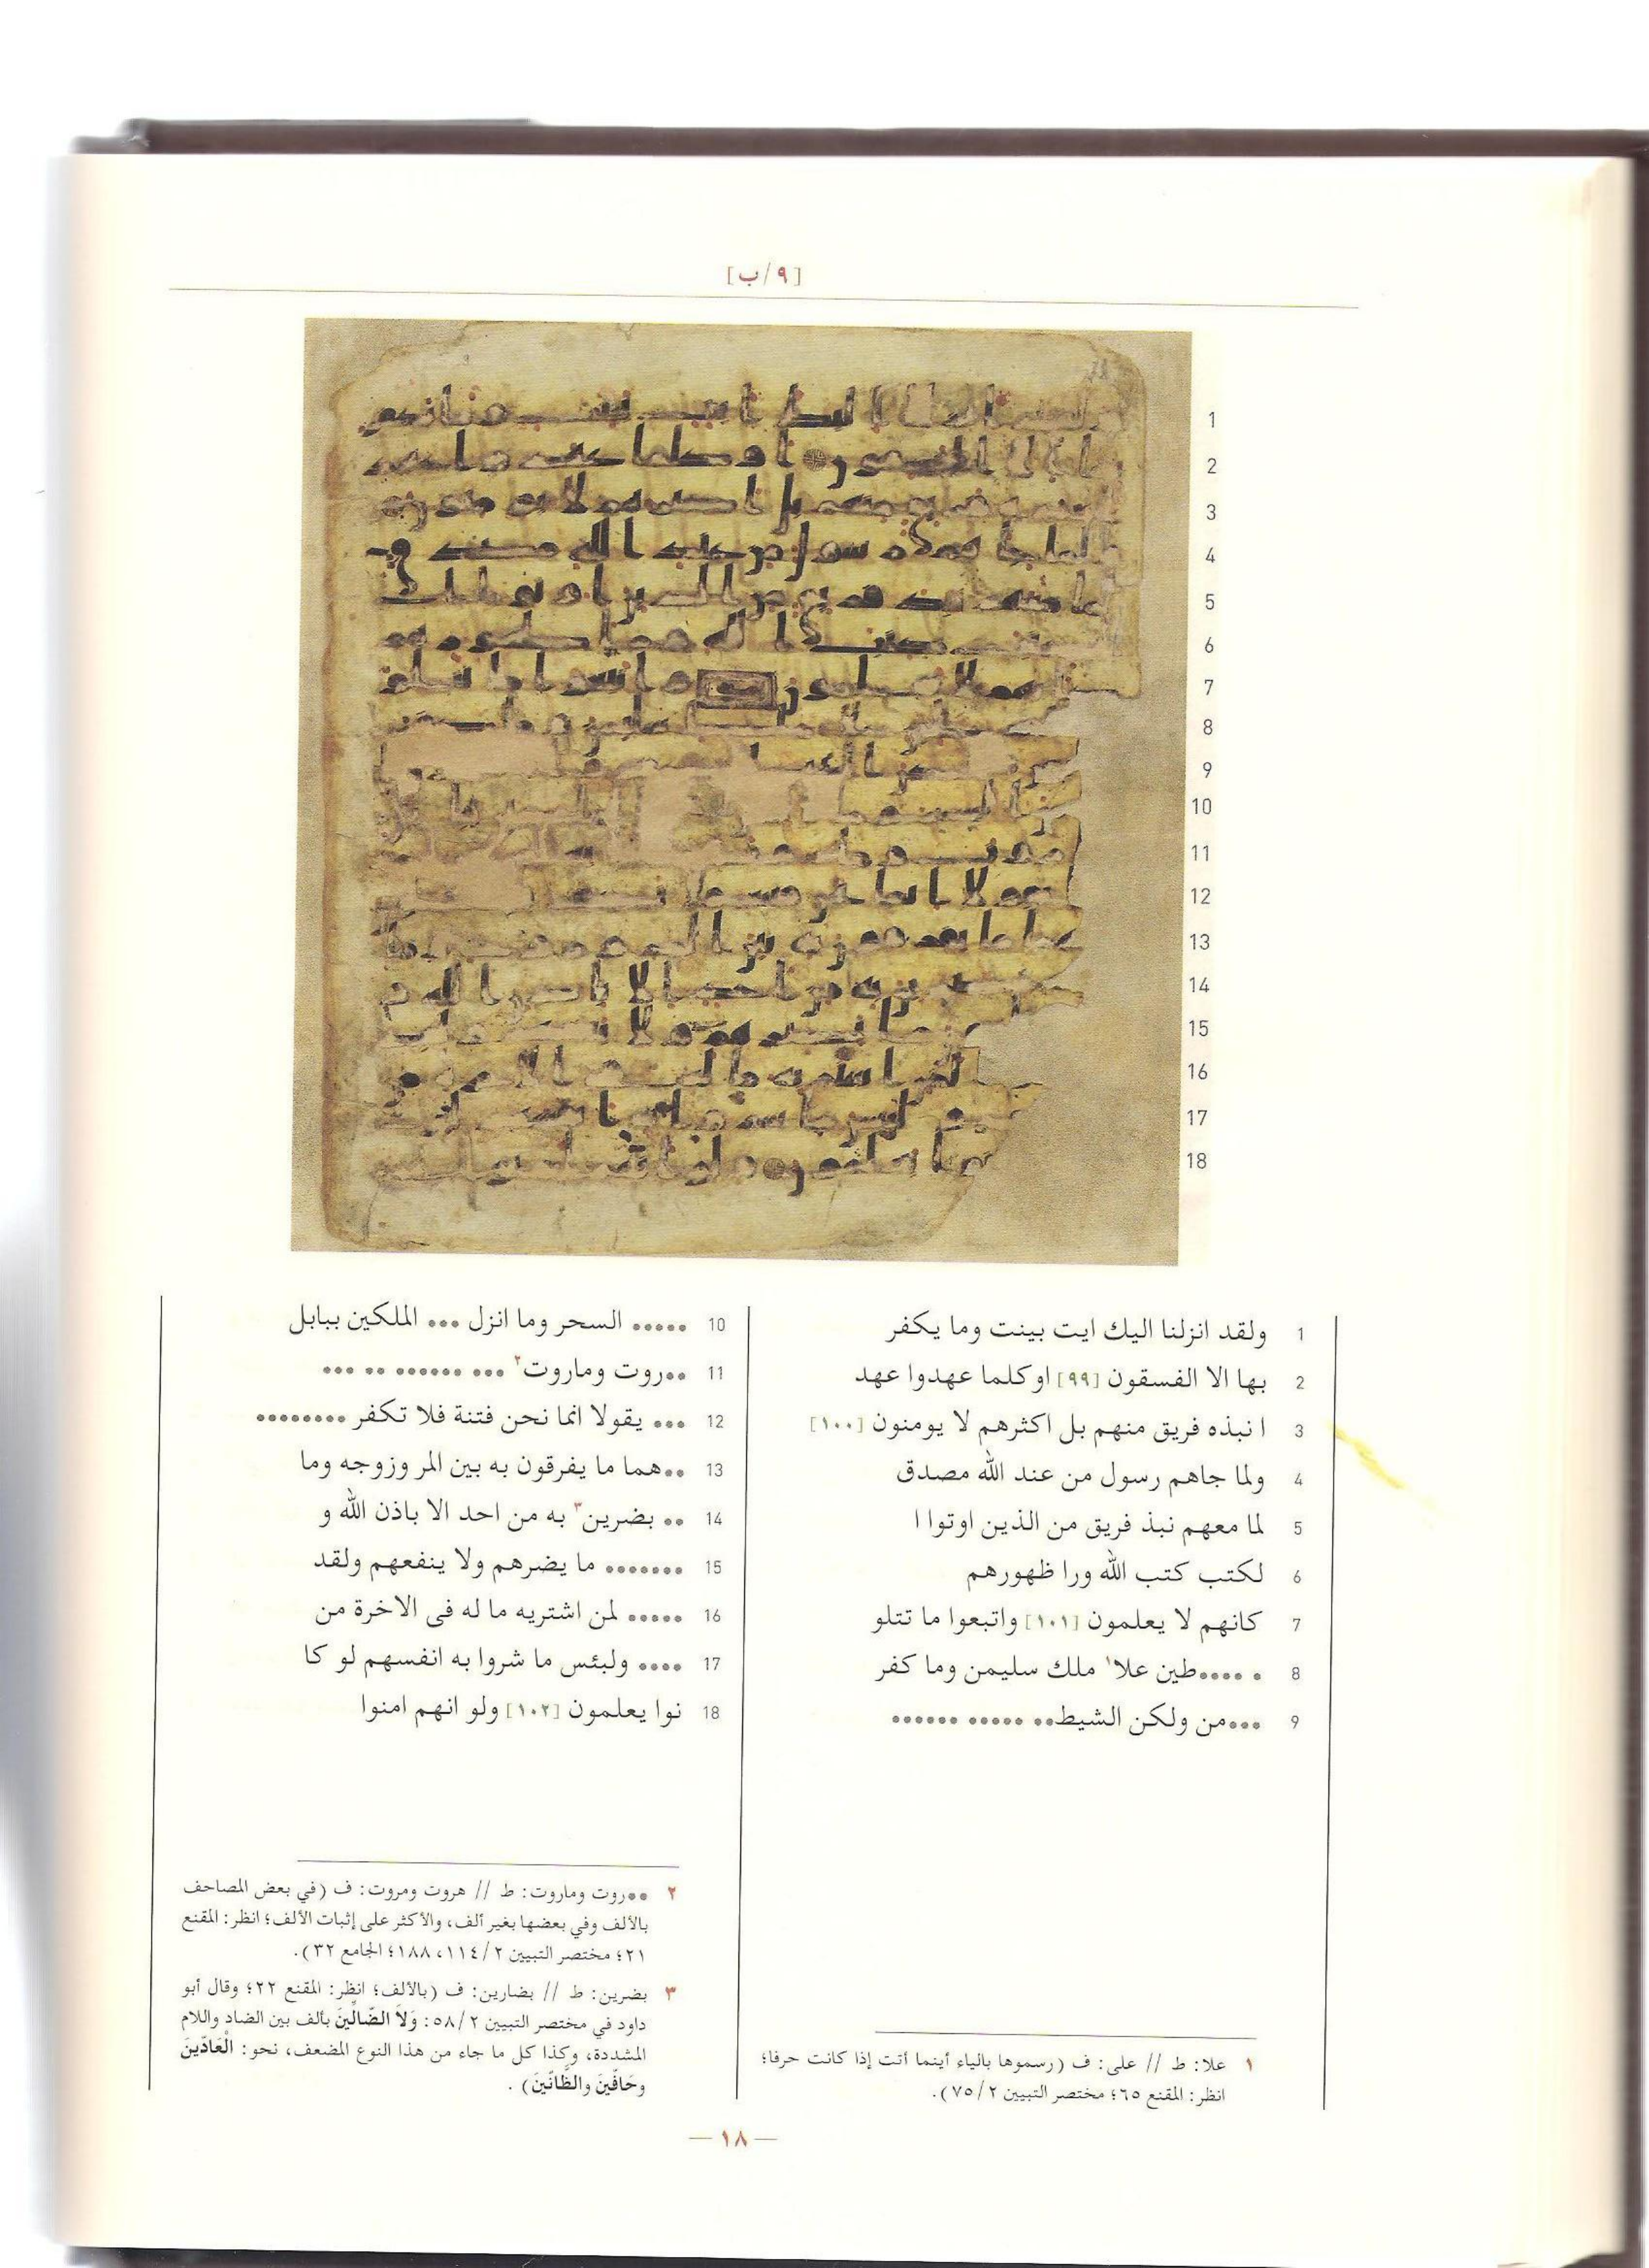 [٩/ب]
1 ولقد انزلنا اليك ايت بينت وما يكفر
2 بها الا الفسقون [٩٩] اوكلما عهدوا عهد
3 ا نبذه فريق منهم بل اكثرهم لا يومنون [١٠٠]
4 ولما جاهم رسول من عند الله مصدق
5 لما معهم نبذ فريق من الذين اوتوا ا
6 لكتب كتب الله ورا ظهورهم
7 كانهم لا يعلمون [١٠١] واتبعوا ما تتلو
8 • •••••طين علا١ ملك سليمن وما كفر
9 •••من ولكن الشيط•• ••••• ••••••
10 ••••• السحر وما انزل ••• الملكين ببابل
11 ••روت وماروت٢ ••• •••••• •• •••
12 ••• يقولا انما نحن فتنة فلا تكفر ••••••••
13 ••هما ما يفرقون به بين المر وزوجه وما
14 •• بضرين٣ به من احد الا باذن الله و
15 ••••••• ما يضرهم ولا ينفعهم ولقد
16 ••••• لمن اشتريه ما له فى الاخرة من
17 •••• ولبئس ما شروا به انفسهم لو كا
18 نوا يعلمون [١٠٢] ولو انهم امنوا
١ علا: ط // على: ف (رسموها بالياء أينما أتت إذا كانت حرفا؛
انظر: المقنع ٦٥؛ مختصر التبيين ٧٥/٢).
٢ ••روت وماروت: ط // هروت ومروت: ف (في بعض المصاحف
بالألف وفي بعضها بغير ألف، والأكثر على إثبات الألف؛ انظر: المقنع
٢١؛ مختصر التبيين ١١٤/٢، ١٨٨؛ الجامع ٣٢).
٣ بضرين: ط // بضارين: ف (بالألف؛ انظر: المقنع ٢٢؛ وقال أبو
داود في مختصر التبيين ٥٨/٢: وَلاَ الضَّالِّينَ بألف بين الضاد واللام
المشددة، وكذا كل ما جاء من هذا النوع المضعف، نحو: الْعَادِّينَ
وحَافِّينَ والظَّانِّينَ).
— ١٨ —